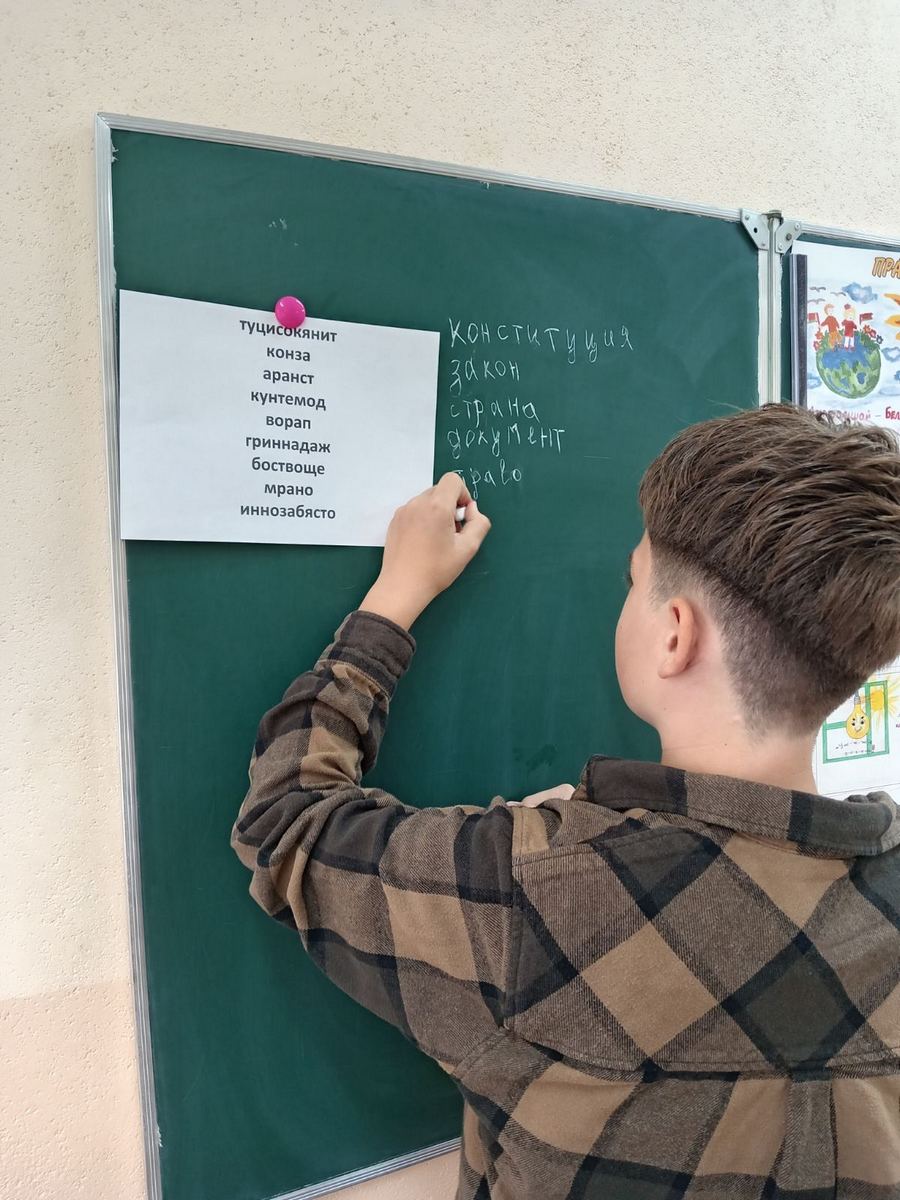 туцисокянит
конза
аранст
кунтемод
ворап
гриннадаж
боствоще
мрано
иннозабясто
конституция
закон
страна
документ
право
ПРА